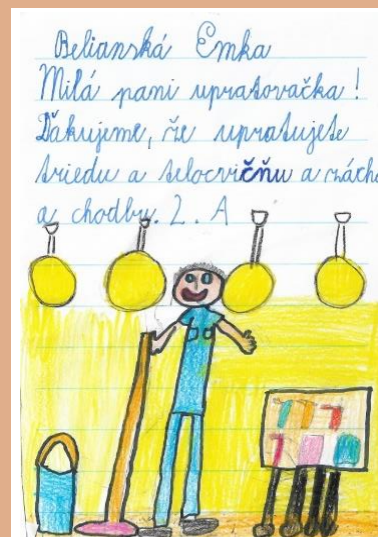 Belianská Emka
Milá pani upratovačka!
Ďakujeme, že upratujete
triedu a telocvičňu a záchod
a chodbu. 2. A